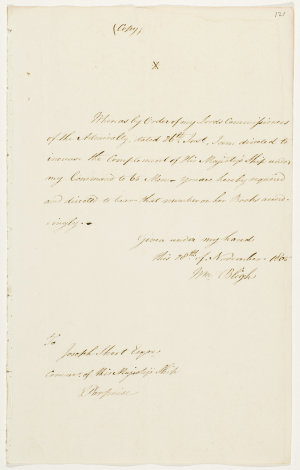 121
(Copy)
x
Whereas by Order of my Lords Commissioners
of the Admiralty, dated 26th Inst, I am directed to
increase the Complement of His Majestys Ship under
my Command to 65 Men You are hereby required
and directed to bear that number on her Books accor-
dingly.
Given under my hand
this 28th of November 1805
Wm Bligh
To
Joseph Short Esqre
Commr of His Majestys Ship
Porpoise